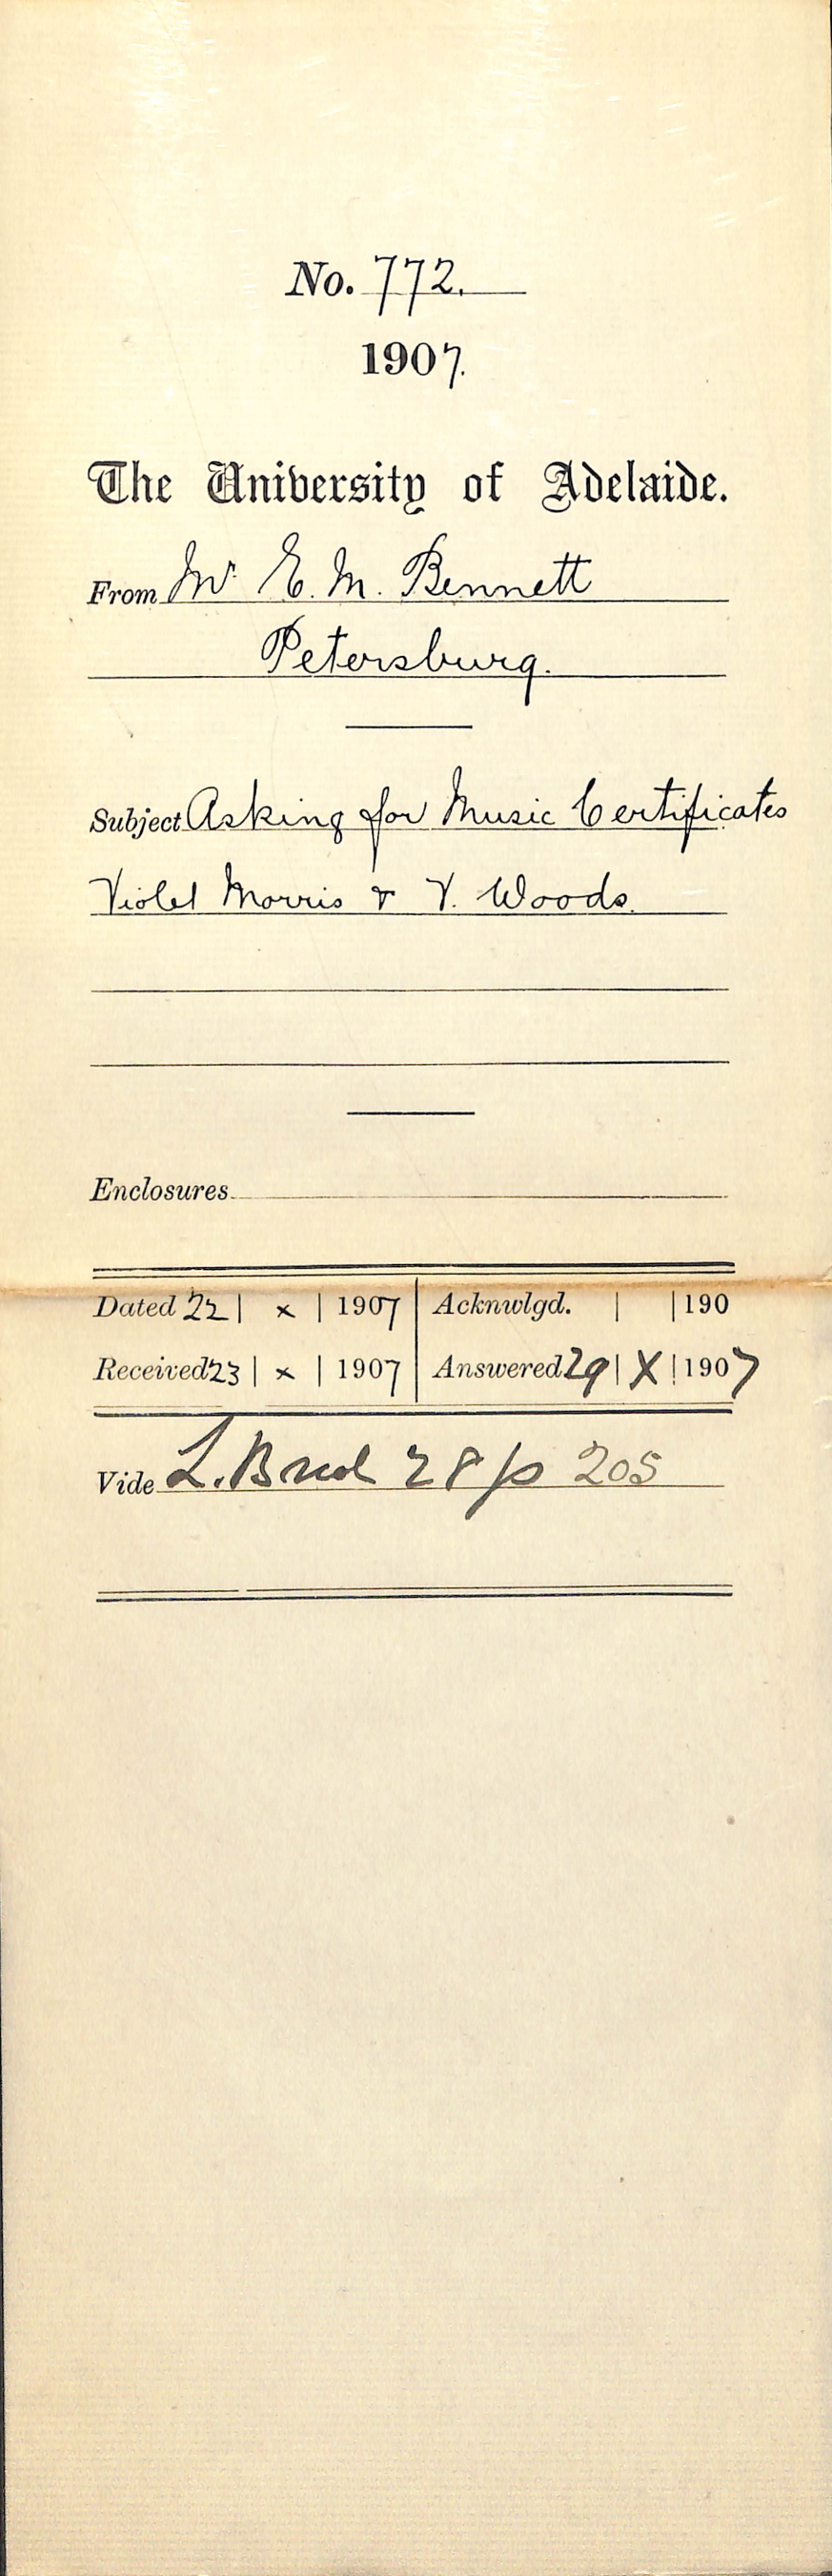 No. 772.
1907.
The University of Adelaide.
From Mr E. M. Bennett
Petersburg.
Subject Asking for Music Certificates
Violet Morris & V. Woods.
Enclosures
Dated 22 | x | 1907 | Acknwlgd. | | 190
Received 23 | x | 1907 | Answered 29 | X | 1907
Vide L. 28 p 205